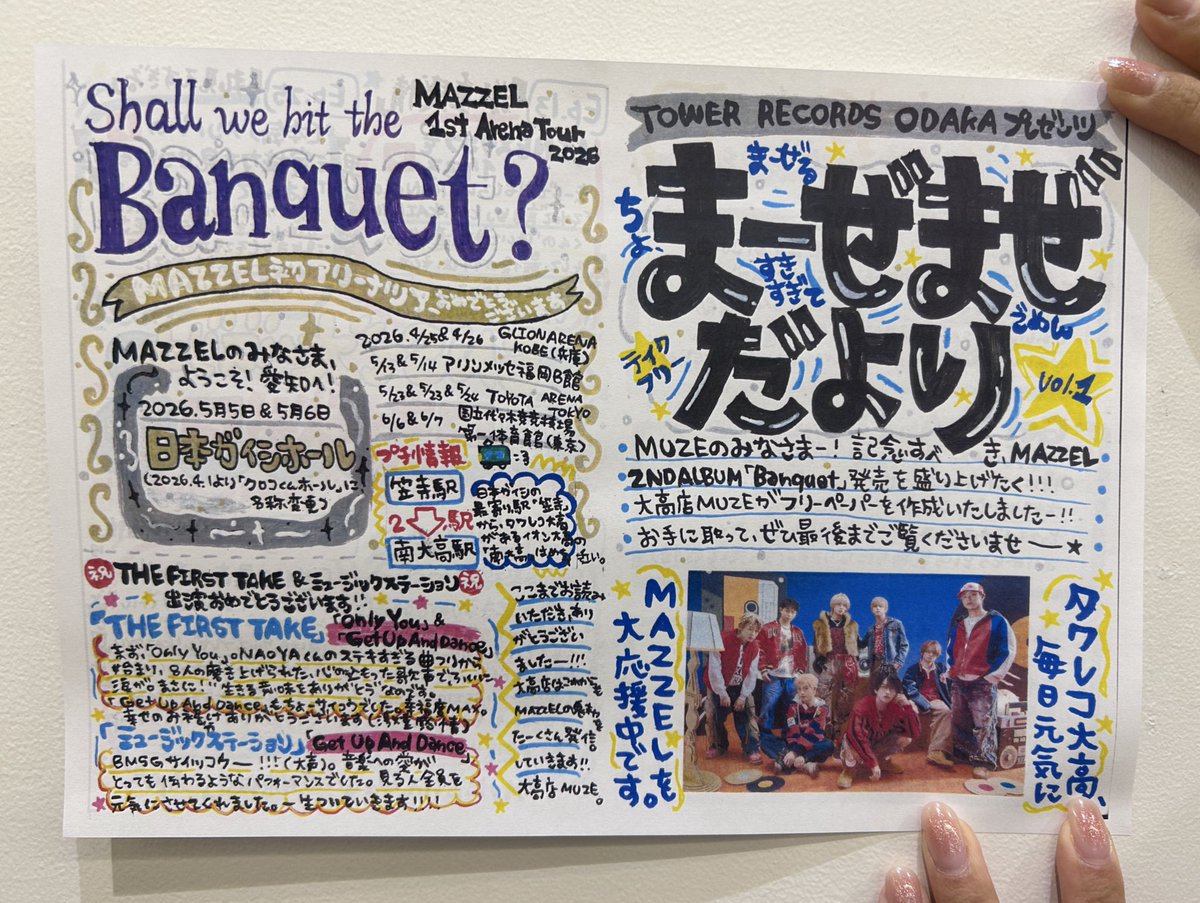 Shall we hit the
MAZZEL
1st Arena Tour
2026
Banquet?
MAZZEL初アリーナツアーおめでとうございます
MAZZELのみなさま、
ようこそ!愛知へ!
2026.5月5日&5月6日
日本ガイシホール
(2026.4.1より「クロコくんホール」に
名称変更)
2026.4/25&4/26 GLION ARENA
KOBE(兵庫)
5/13&5/14 マリンメッセ福岡B館
5/23&5/23&5/24 TOYOTA ARENA
TOKYO
6/6&6/7 国立代々木競技場
第一体育館(東京)
プチ情報
:3
笠寺駅
2駅
南大高駅
日本ガイシの
最寄り駅"笠寺"
から、タワレコ大高
があるイオン大高の
"南大高"はめちゃ近い。
祝 THE FIRST TAKE & ミュージックステーション 祝
出演おめでとうございます!!
「THE FIRST TAKE」「Only You」&
「Get Up And Dance」
まず、「Only You」。NAOYAくんのステキすぎる曲フリから
始まり、8人の磨き上げられた、心のこもった歌声でスルルルと
涙が。まさに!!"生きる意味をありがとう"なのです。
「Get Up And Dance」もちょーサイコウでした。幸福度MAX。
幸せのお裾分けありがとうございます
「ミュージックステーション」「Get Up And Dance」
BMSGサイッコウー!!!(大声)。音楽への愛が
とっても伝わるようなパフォーマンスでした。見る人全員を
元気にさせてくれました。一生ついていきます!!!
ここまでお読み
いただき、あり
がとうござい
ましたー!!!
大高店はこれからも
MAZZELの魅力を
たーくさん発信。
していきます!!
大高店MUZE。
TOWER RECORDS ODAKAプレゼンツ
まーぜる
ちょー
すき
すぎて
まーぜまぜ
だより
ごめん
テイク
フリー
vol.1
MUZEのみなさまー!記念すべき、MAZZEL
2ND ALBUM「Banquet」発売を盛り上げたく!!!
大高店MUZEがフリーペーパーを作成いたしましたー!!
お手に取って、ぜひ最後までご覧くださいませー★
タワレコ大高、
毎日元気に
MAZZELを
大応援中です。